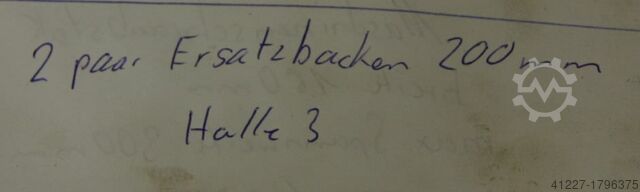 2 paar Ersatzbacken 200mm
Halle 3
41227-1796375